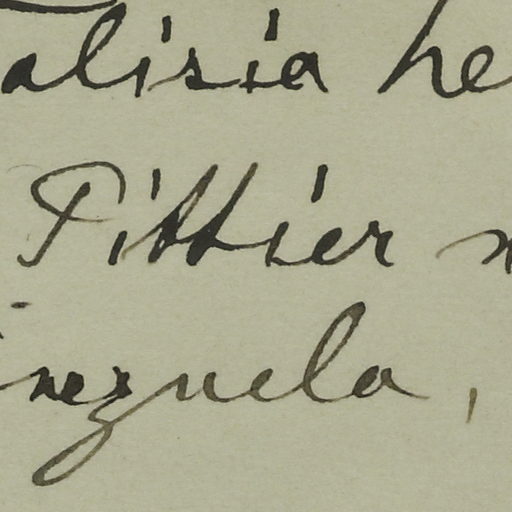 alisia he
Pittier n
nezuela,